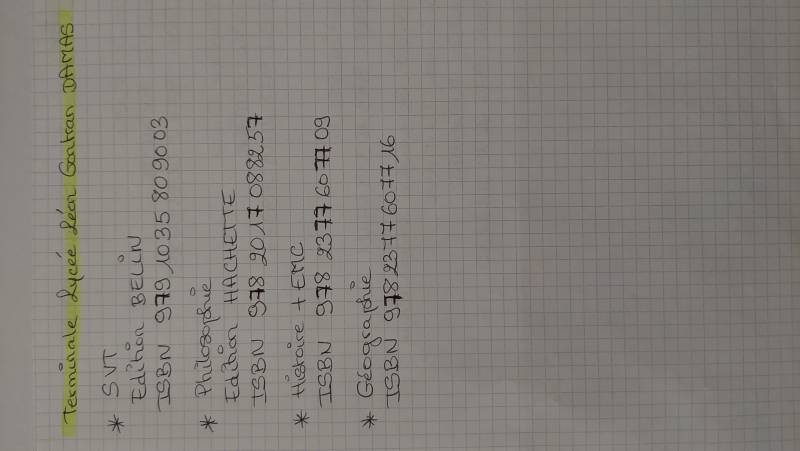 Terminale Lycée Léon Gontran DAMAS
* SVT
Edition BELIN
ISBN 979 1035 809003
* Philosophie
Edition HACHETTE
ISBN 978 2017 088257
* Histoire + EMC
ISBN 978 2377607709
* Géographie
ISBN 9782377607716